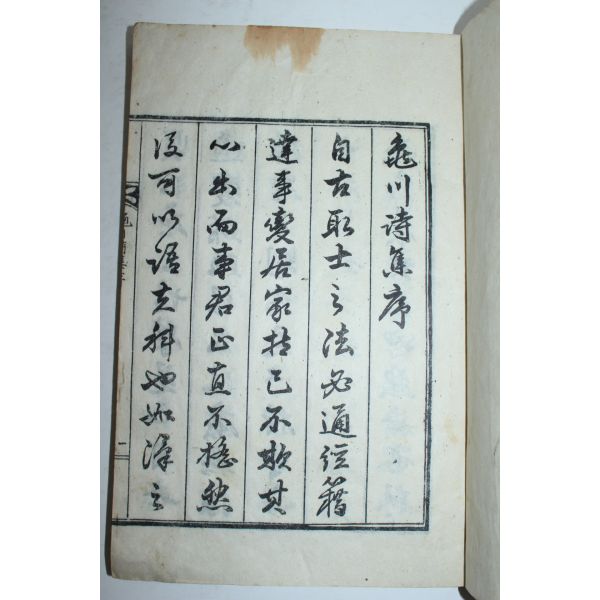 龜川詩集序
自古取士之法必通經籍
達事變居家持己不欺其
心出而事君正直不撓然
後可以語其科也如漢之